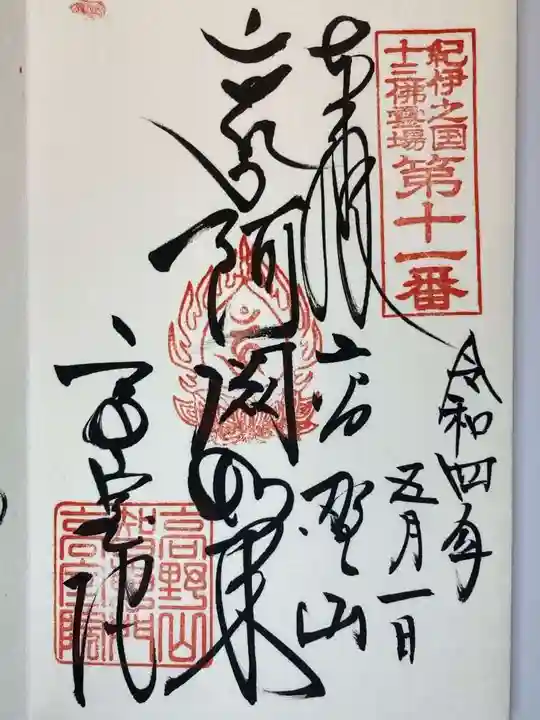 紀伊之国
十三佛霊場
第十一番
令和四年
五月一日
奉拝
高野山
阿閦如来
高室院
高野山
高室院